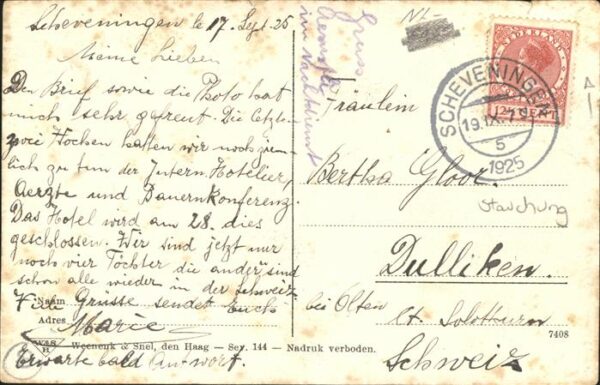 Scheveningen le 17. Sept. 25
Meine Lieben
Den Brief sowie die Photo hat
mich sehr gefreut. Die letzten
zwei Wochen hatten wir noch ziem-
lich zu tun der Intern. Hotelier,
Aerzte und Bauernkonferenz.
Das Hotel wird am 28. dies
geschlossen. Wir sind jetzt nur
noch vier Töchter die andern sind
schon alle wieder in der Schweiz.
Grüsse sendet Euch
Marie
Erwarte bald Antwort.
Naam
Adres
Weenenk & Snel, den Haag — Sev. 144 — Nadruk verboden.
7408
Gruss
NL-
NEDERLAND
CENT
SCHEVENINGEN
19.IX.
5
1925
Fräulein
Bertha Gloor.
Stauchung
Dulliken.
bei Olten
Kt. Solothurn
Schweiz